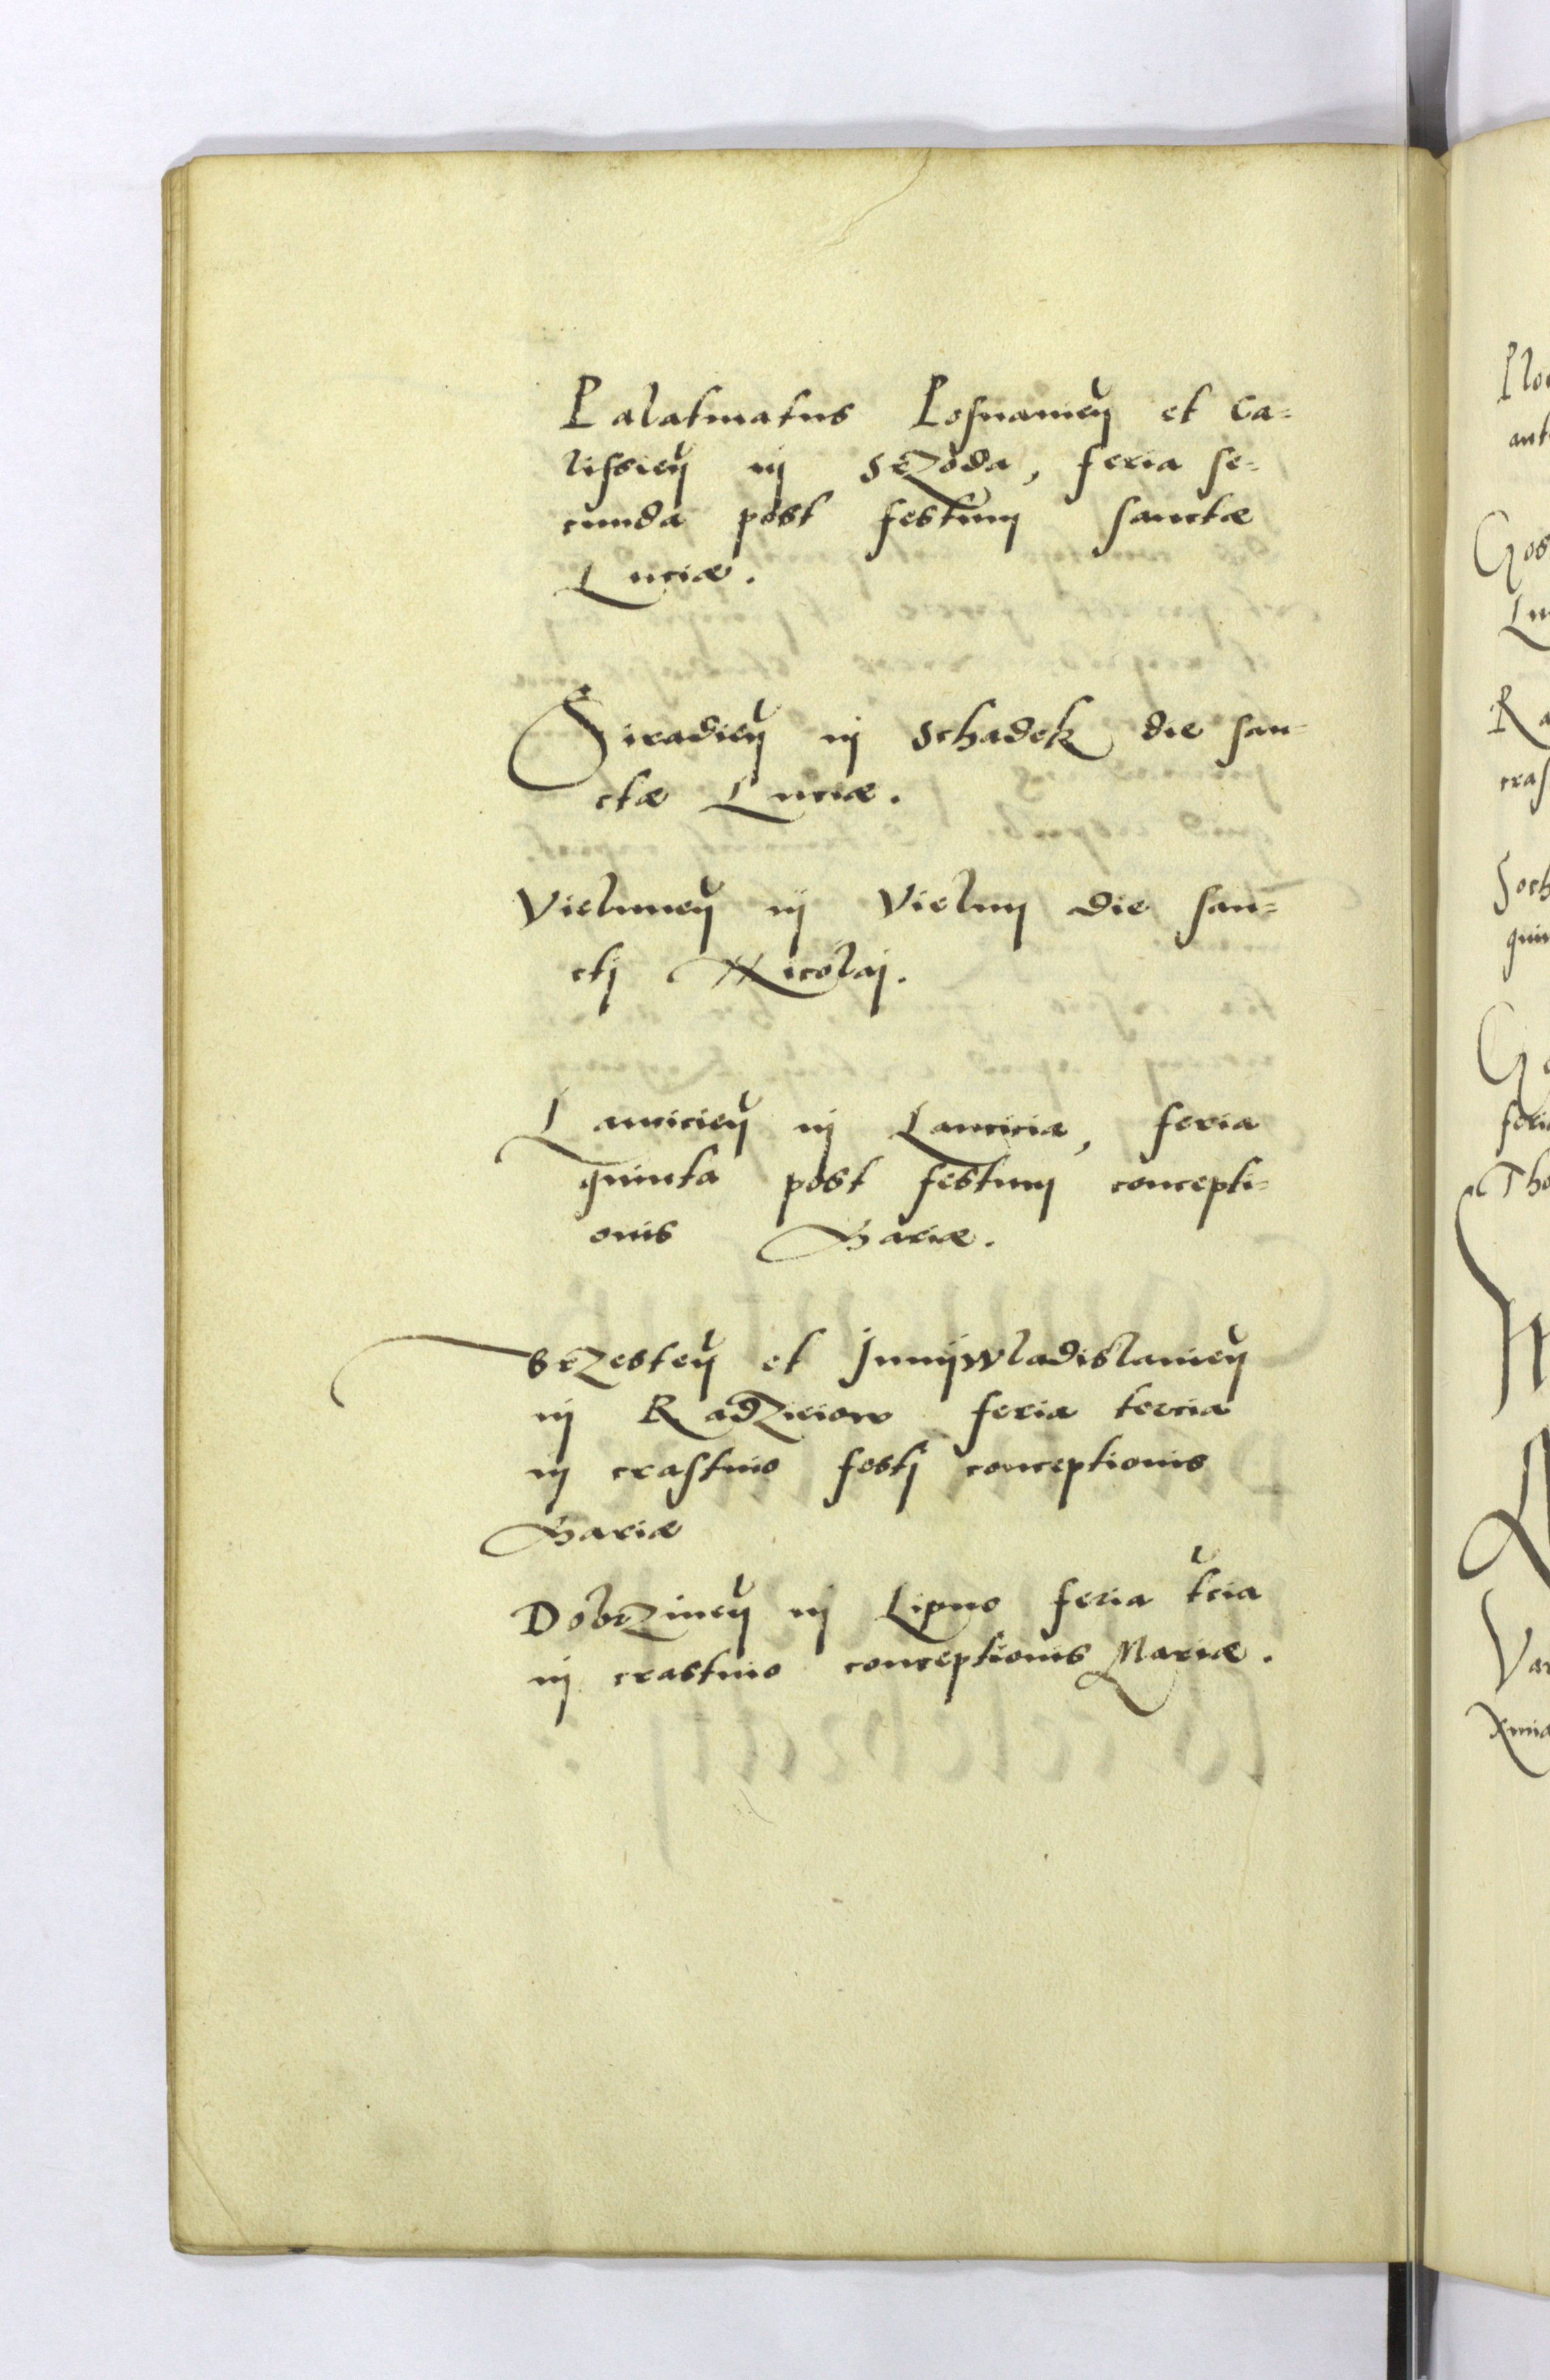 Palatinatus Posnanien̄ et Ca=
lissien̄ in Srzoda, feria se=
cunda post festum sanctæ
Luciæ.
Siradien̄ in Schadek die san=
ctæ Luciæ.
Vielunen̄ in Vielun die san=
cti Nicolai.
Lancicien̄ in Lanciciæ, feria
quinta post festum concepti=
onis Mariæ.
Brzesten̄ et Juniwladislauien̄
in Radzieiow feria tercia
in crastino festi conceptionis
Mariæ
Dobrzinen̄ in Lipno feria t̄cia
in crastino conceptionis Mariæ.